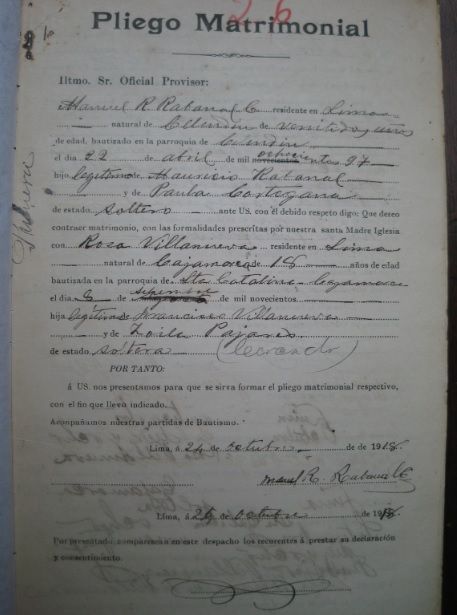 26
Pliego Matrimonial
Iltmo. Sr. Oficial Provisor:
Manuel R. Rabanal C residente en Lima
natural de Celendín de veintidos años
de edad, bautizado en la parroquia de Celendín
el día 22 de abril de mil novecientos ochocientos 97
hijo legítimo de Mauricio Rabanal
y de Paula Cortegana
de estado soltero ante US. con el debido respeto digo: Que deseo
contraer matrimonio, con las formalidades prescritas por nuestra santa Madre Iglesia
con Rosa Villanueva residente en Lima
natural de Cajamarca de 18 años de edad
bautizada en la parroquia de Sta Catalina Cajamarca
el día 8 de setiembre de mil novecientos
hija legítima de Francisco Villanueva
y de Zoila Pajares
de estado soltera
POR TANTO:
á US. nos presentamos para que se sirva formar el pliego matrimonial respectivo,
con el fin que llevo indicado.
Acompañamos nuestras partidas de Bautismo.
Lima, á 24 de octubre de 1918.
Manuel R. Rabanal C
Lima, á 24 de octubre de 1918.
Por presentado, comparezcan en este despacho los recurentes á prestar su declaración
y consentimiento.